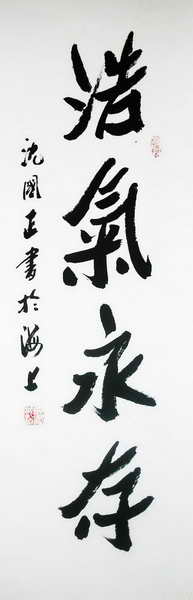 浩氣永存
沈國正書於海上